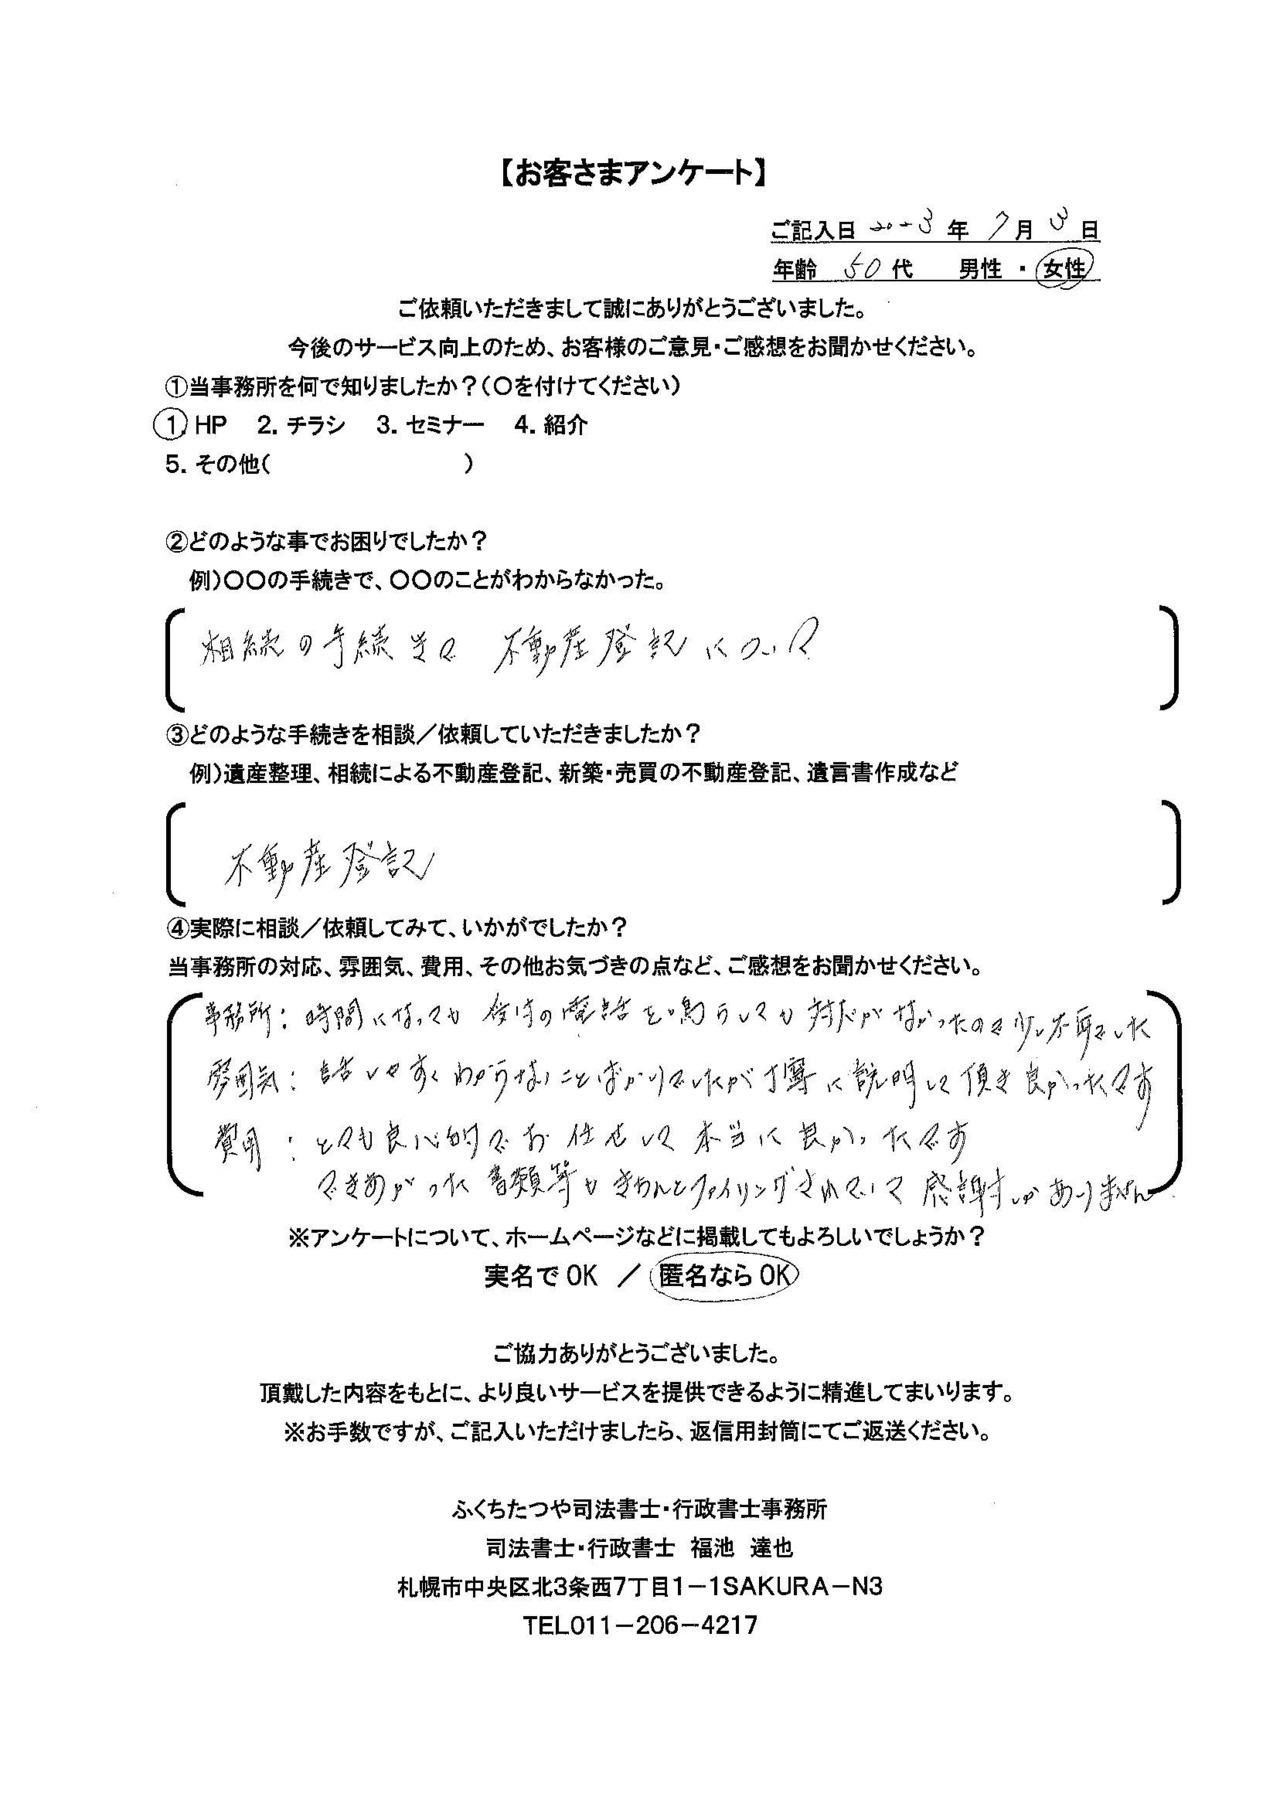 【お客さまアンケート】
ご記入日 2023 年 7 月 3 日
年齢 50 代 男性 ・ 女性
ご依頼いただきまして誠にありがとうございました。
今後のサービス向上のため、お客様のご意見・ご感想をお聞かせください。
①当事務所を何で知りましたか？（○を付けてください）
1. HP 2. チラシ 3. セミナー 4. 紹介
5. その他（ ）
②どのような事でお困りでしたか？
例）○○の手続きで、○○のことがわからなかった。
相続の手続きで 不動産登記について
③どのような手続きを相談／依頼していただきましたか？
例）遺産整理、相続による不動産登記、新築・売買の不動産登記、遺言書作成など
不動産登記
④実際に相談／依頼してみて、いかがでしたか？
当事務所の対応、雰囲気、費用、その他お気づきの点など、ご感想をお聞かせください。
事務所：時間になっても 受付の電話を鳴らしても 対応がなかったので少し不安でした
雰囲気：話しやすくわからないことばかりでしたが丁寧に説明して頂き良かったです
費用：とても良心的でお任せして本当に良かったです
できあがった書類等もきちんとファイリングされていて感謝しかありません
※アンケートについて、ホームページなどに掲載してもよろしいでしょうか？
実名でOK ／ 匿名ならOK
ご協力ありがとうございました。
頂戴した内容をもとに、より良いサービスを提供できるように精進してまいります。
※お手数ですが、ご記入いただけましたら、返信用封筒にてご返送ください。
ふくちたつや司法書士・行政書士事務所
司法書士・行政書士 福池 達也
札幌市中央区北3条西7丁目1－1SAKURA－N3
TEL011－206－4217